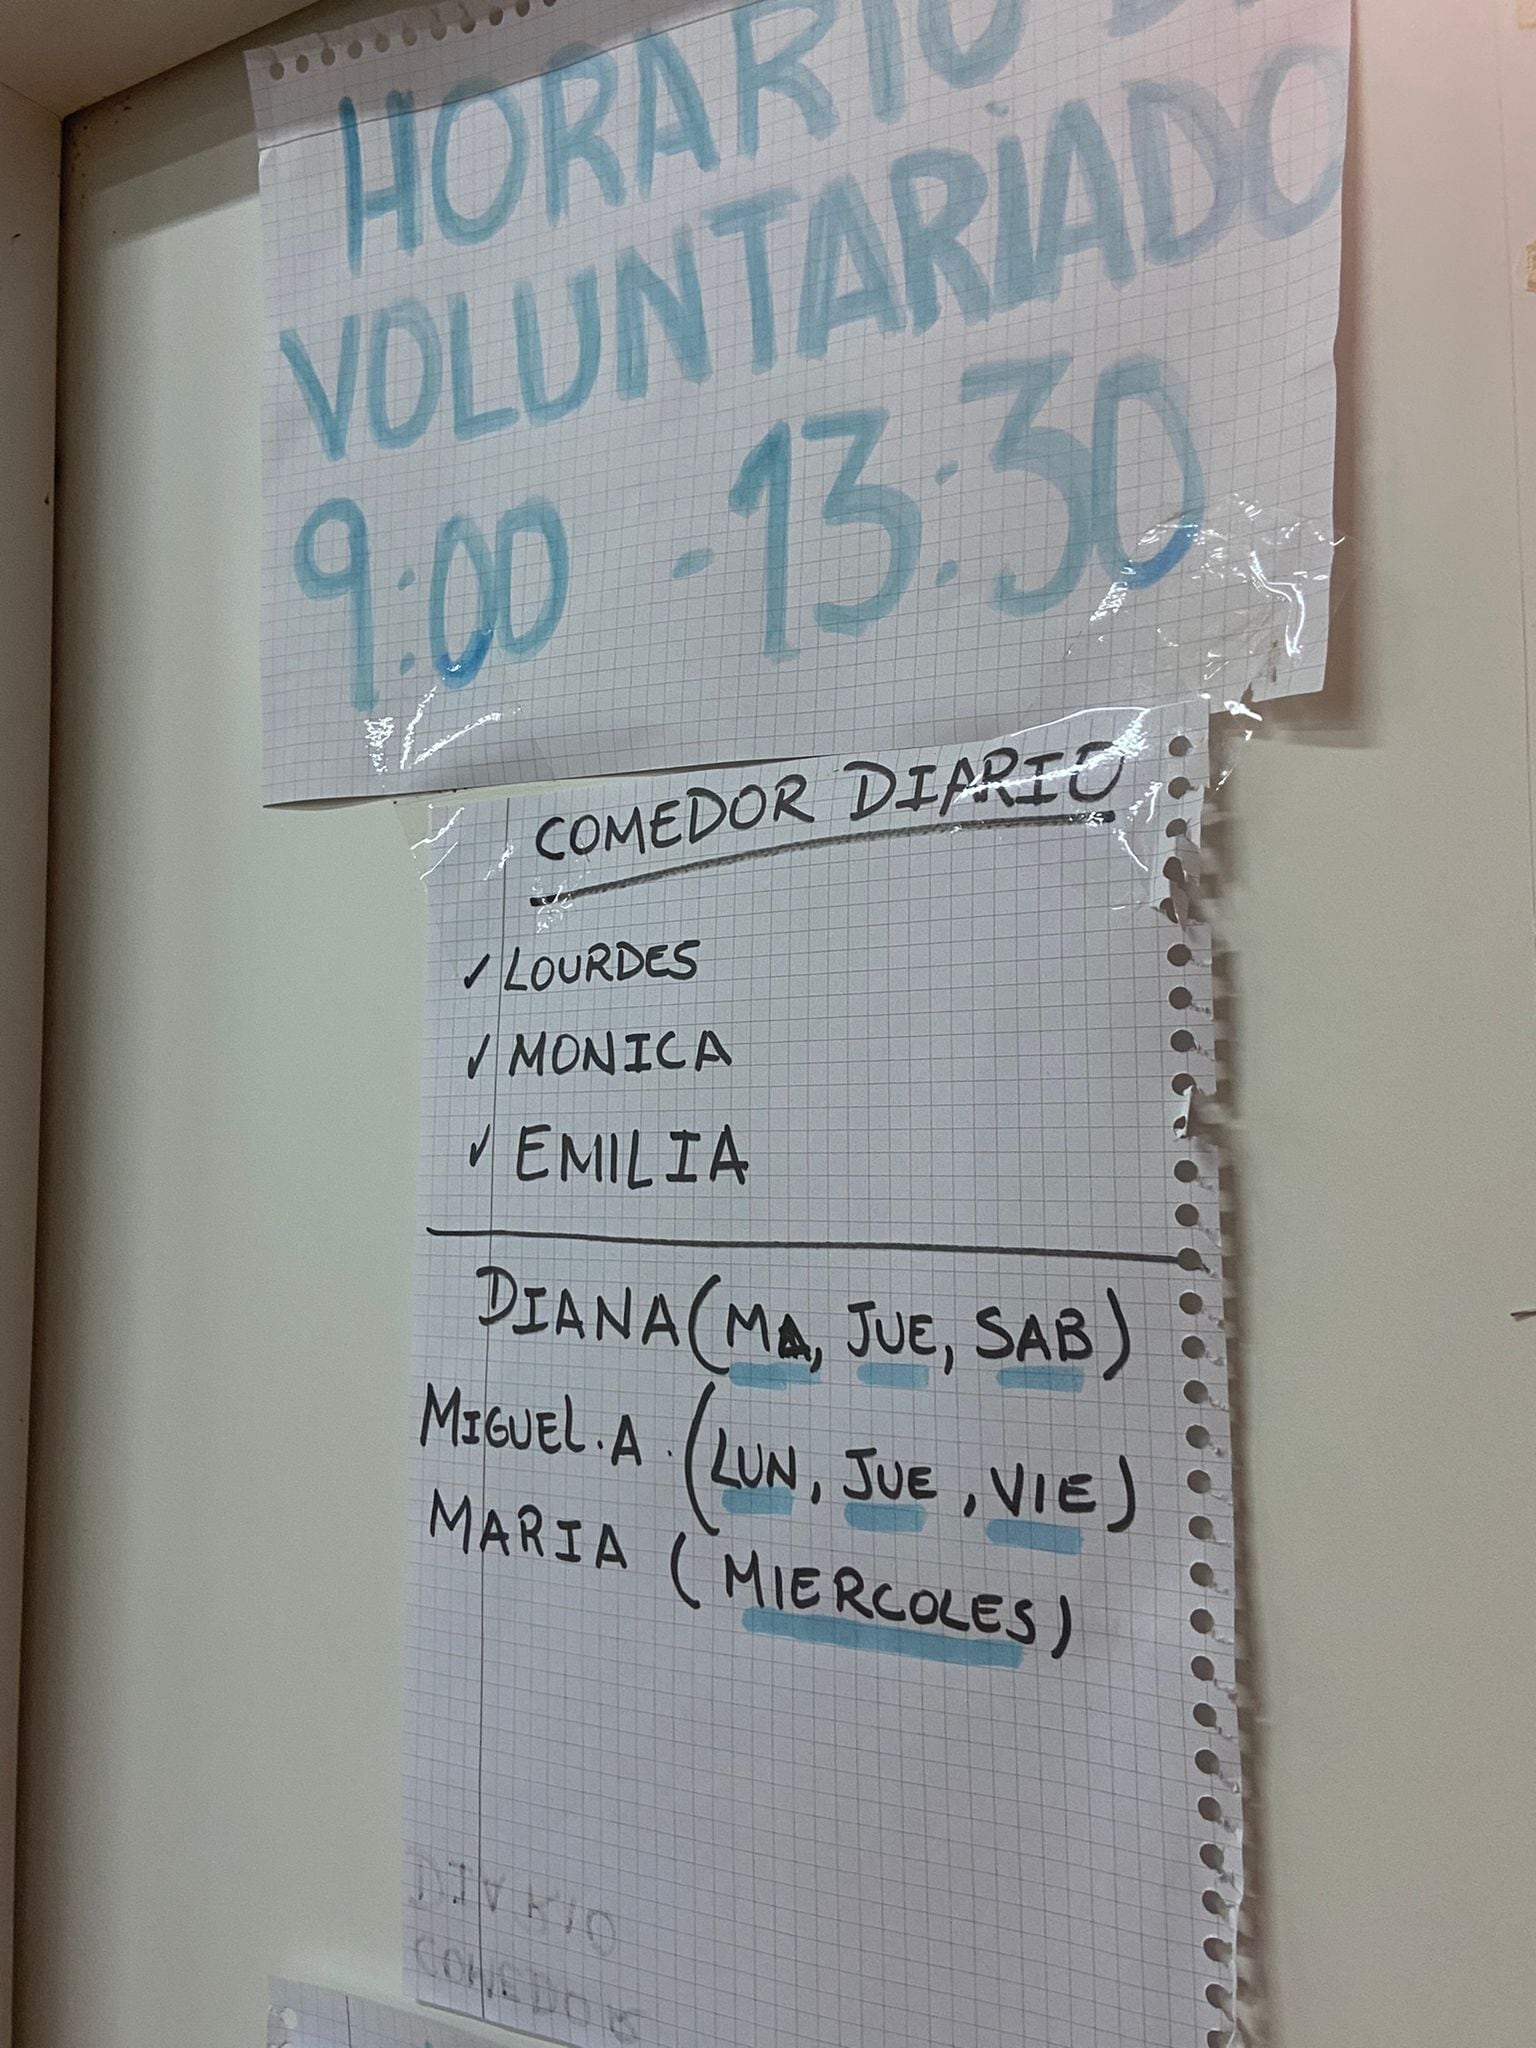 HORARIO D
VOLUNTARIADO
9:00 - 13:30
COMEDOR DIARIO
✓ LOURDES
✓ MONICA
✓ EMILIA
DIANA (MA, JUE, SAB)
MIGUEL.A. (LUN, JUE, VIE)
MARIA (MIERCOLES)
DIARIO
COMEDOR